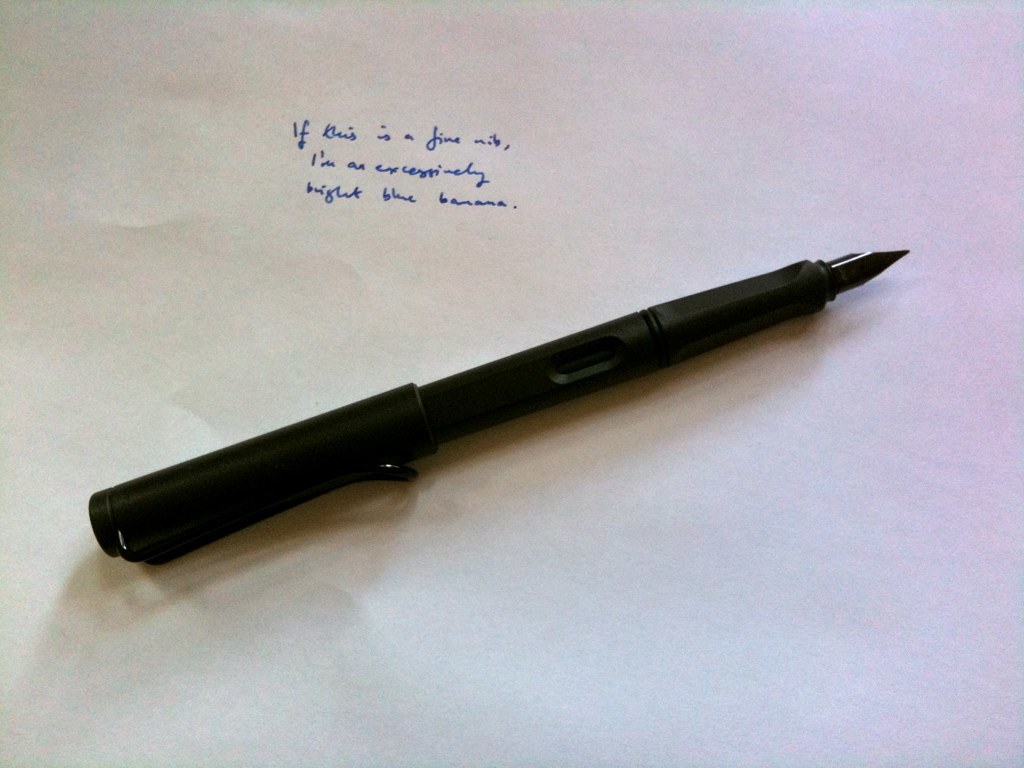 If this is a fine nib,
I'm an excessively
bright blue banana.